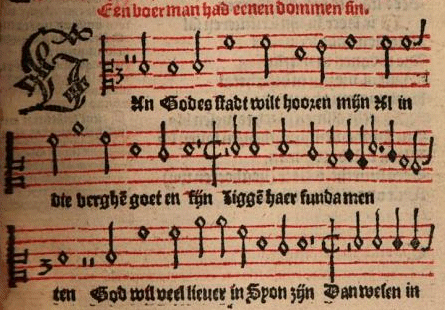 Een boer man had eenen dommen sin.
VAn Godes stadt wilt hoozen mijn Al in
die berghē goet en fijn Liggē haer fundamen
ten God wil veel liever in Syon zijn Dan wesen in